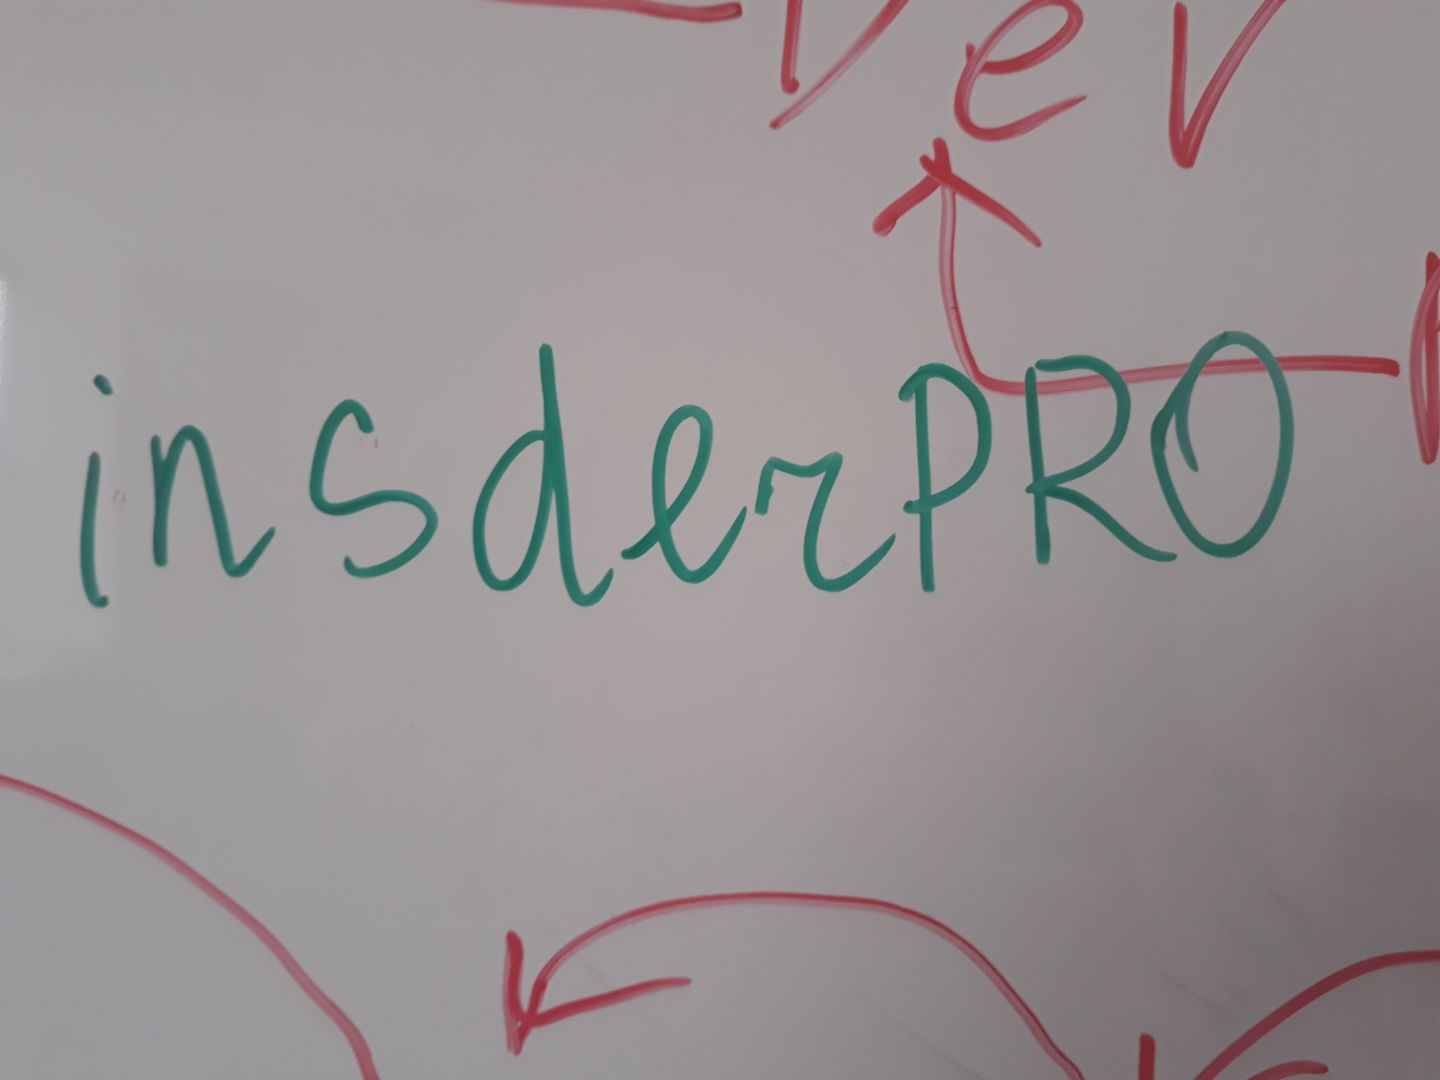 Dev
insderPRO